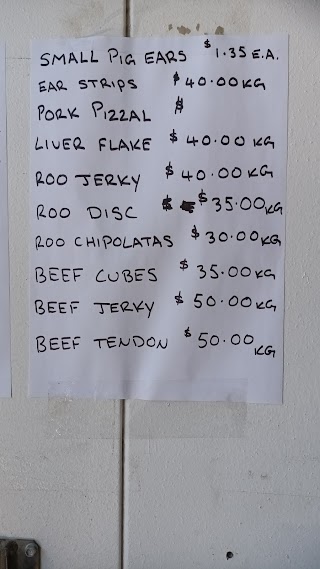 SMALL PIG EARS $1.35 E.A.
EAR STRIPS $40.00KG
PORK PIZZAL $
LIVER FLAKE $40.00 KG
ROO JERKY $40.00 KG
ROO DISC $ $35.00KG
ROO CHIPOLATAS $30.00KG
BEEF CUBES $35.00 KG
BEEF JERKY $50.00 KG
BEEF TENDON $50.00 KG